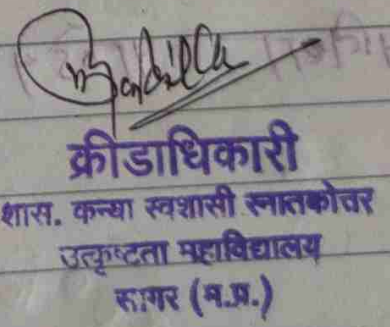 क्रीडाधिकारी
शास. कन्या स्वशासी स्नातकोत्तर
उत्कृष्टता महाविद्यालय
सागर (म.प्र.)